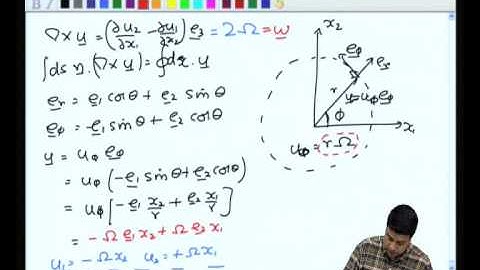 ∇×u = (∂u₂/∂x₁ − ∂u₁/∂x₂) e₃ = 2Ω = ω
∫ds n.(∇×u) = ∮dx.u
e_r = e₁ cosθ + e₂ sinθ
e_φ = -e₁ sinθ + e₂ cosθ
u = u_φ e_φ
= u_φ (-e₁ sinθ + e₂ cosθ)
= u_φ [-e₁ x₂/r + e₂ x₁/r]
= -Ω e₁ x₂ + Ω e₂ x₁
u₁ = -Ω x₂ u₂ = +Ω x₁
x₂
e_φ
e_r
r
u = u_φ e_φ
φ
x₁
u_φ = rΩ